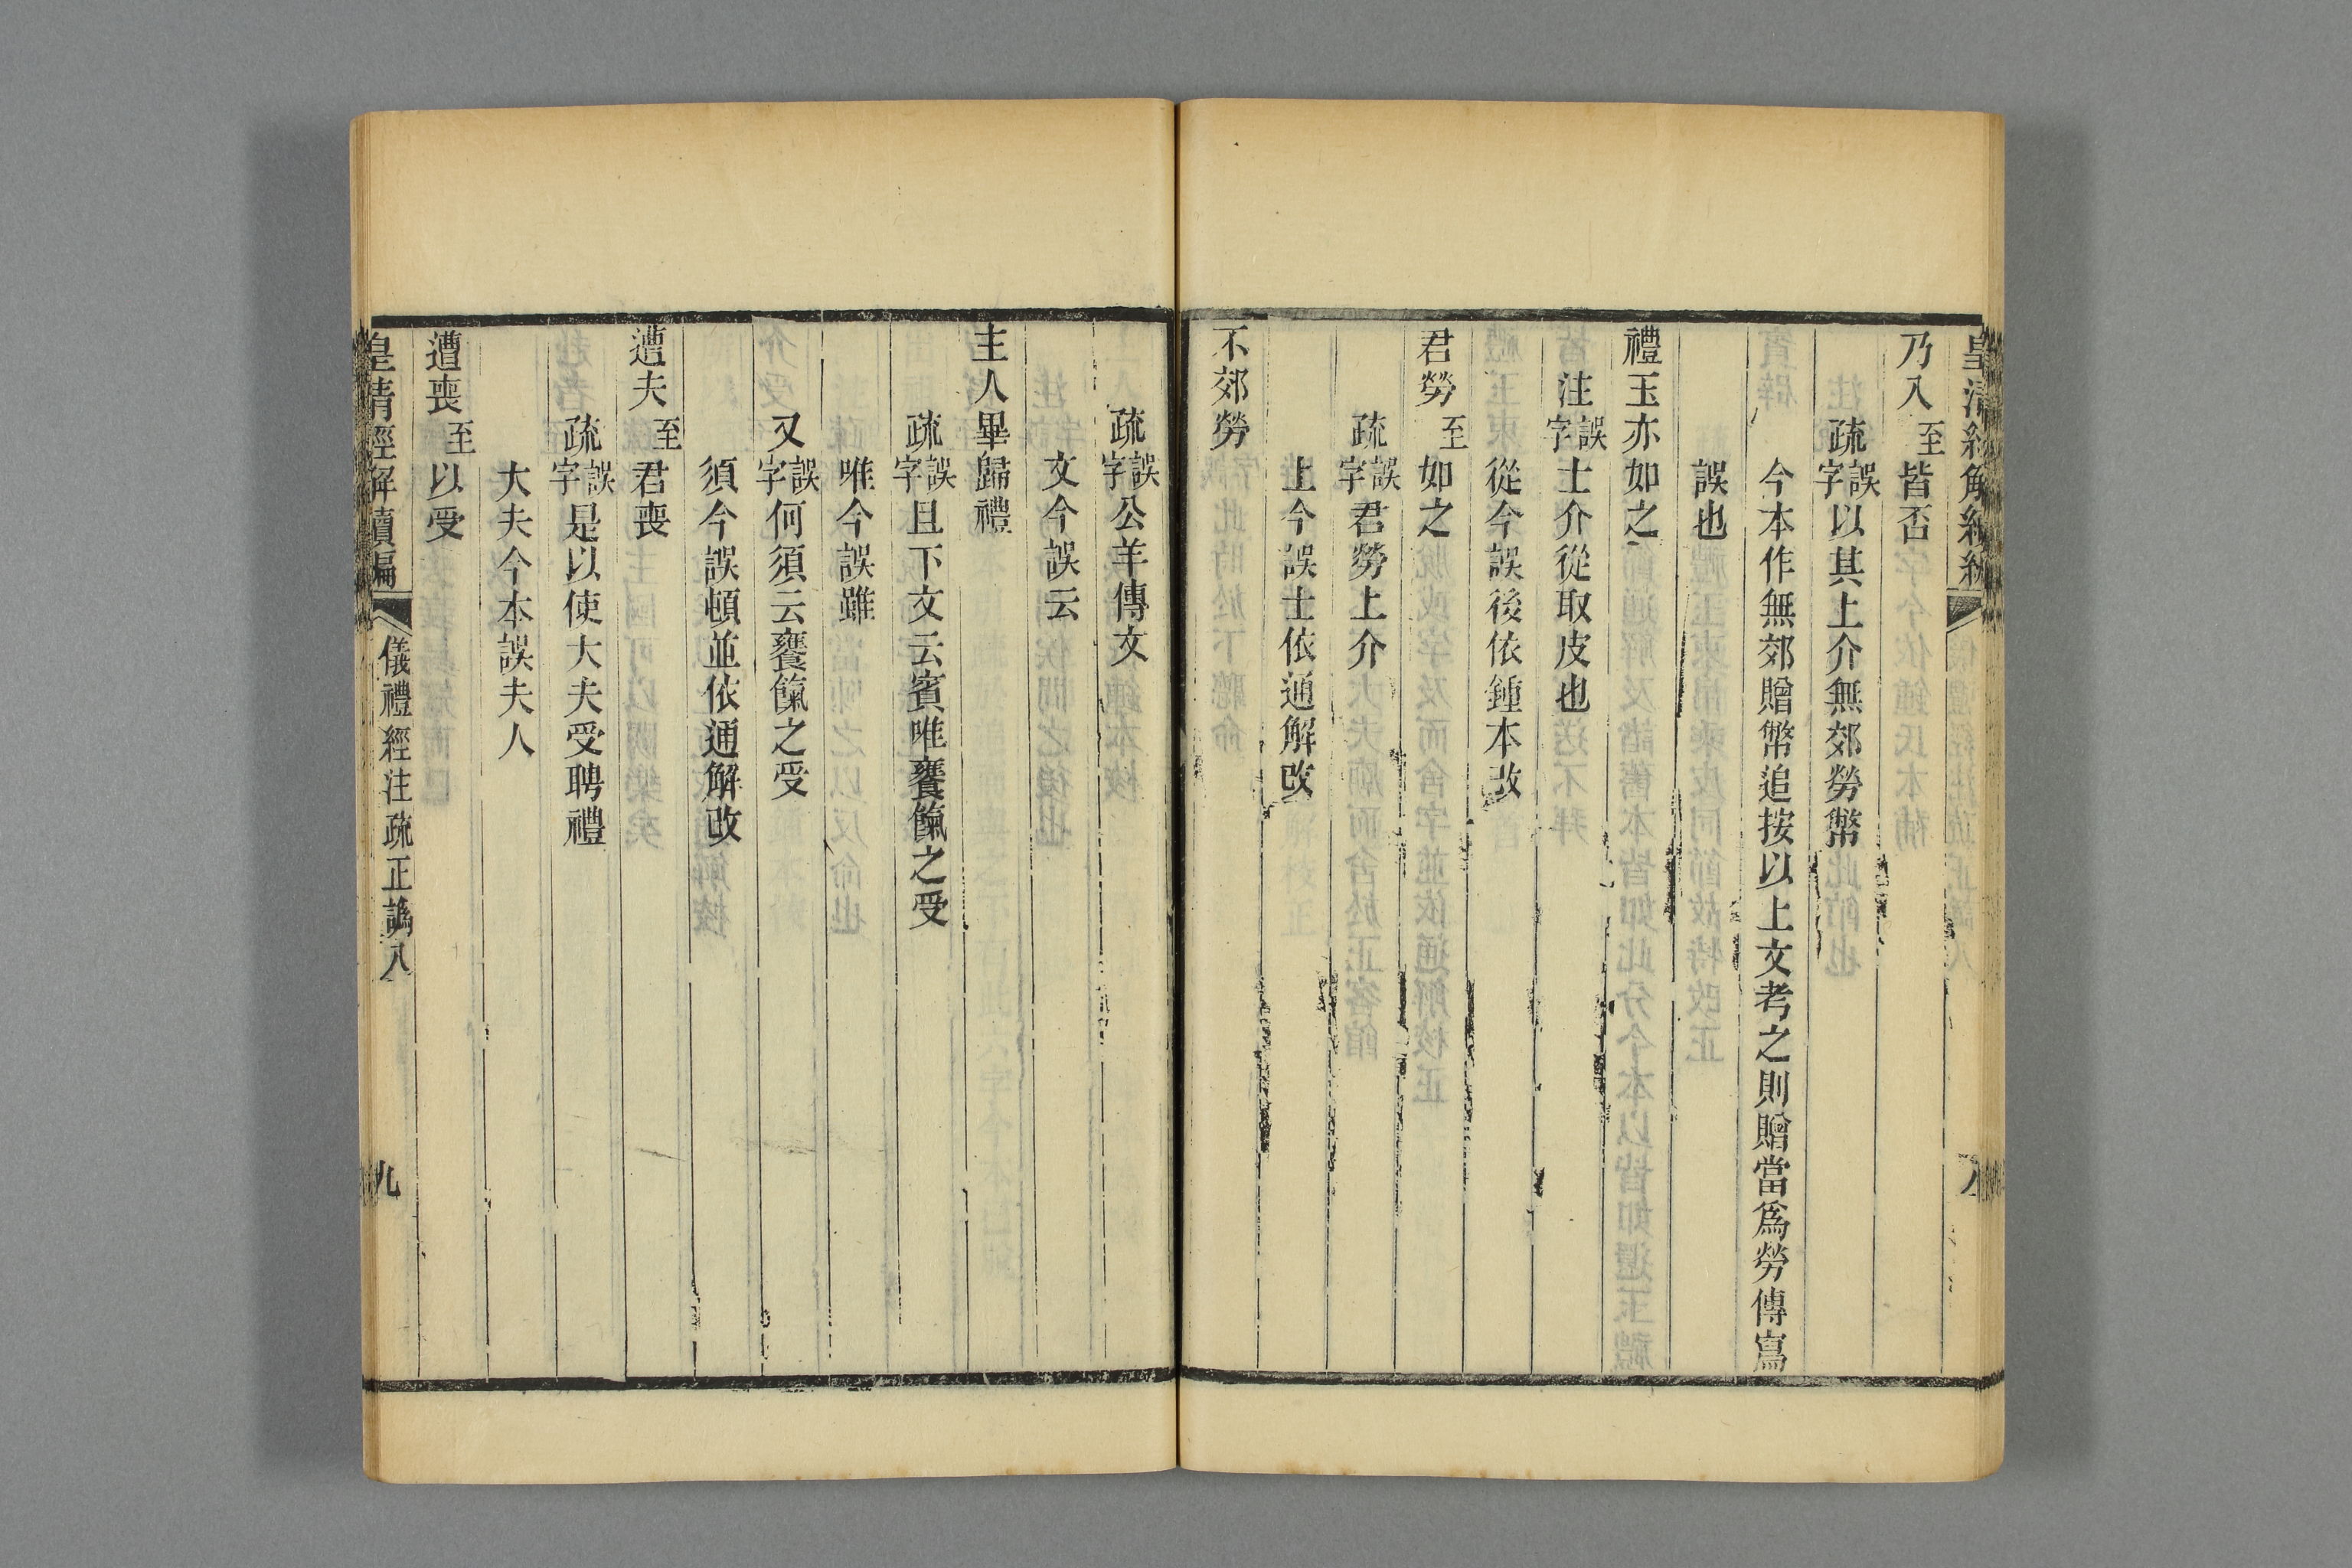 乃入至皆否
疏誤字以其上介無郊勞幣
今本作無郊贈幣追按以上文考之則贈當爲勞傳寫
誤也
禮玉亦如之
注誤字士介從取皮也
從今誤後依鍾本改
君勞至如之
疏誤字君勞上介
上今誤士依通解改
不郊勞
疏誤字公羊傳文
文今誤云
主人畢歸禮
疏誤字且下文云賓唯饔餼之受
唯今誤雖
又誤字何須云饔餼之受
須今誤頓並依通解改
遭夫至君喪
疏誤字是以使大夫受聘禮
大夫今本誤夫人
遭喪至以受
皇清經解續編
儀禮經注疏正譌八
九